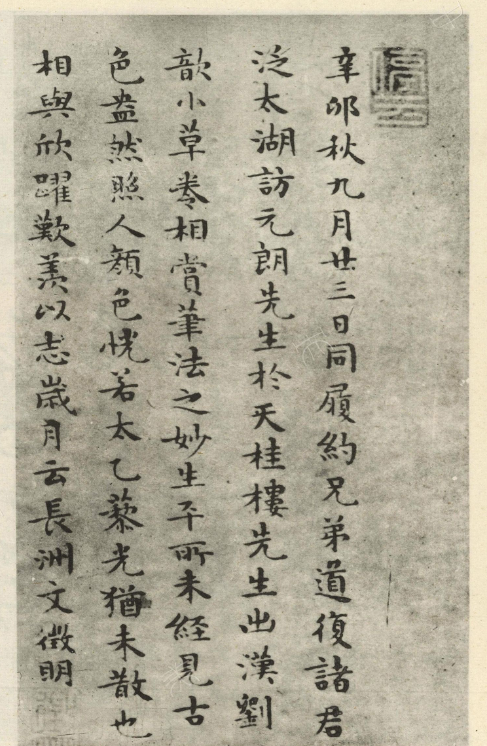 辛卯秋九月廿三日同履約兄弟道復諸君
泛太湖訪元朗先生於天桂樓先生出漢劉
歆小草卷相賞筆法之妙生平所未經見古
色盎然照人顏色恍若太乙藜光猶未散也
相與欣躍歎羨以志歲月云長洲文徵明